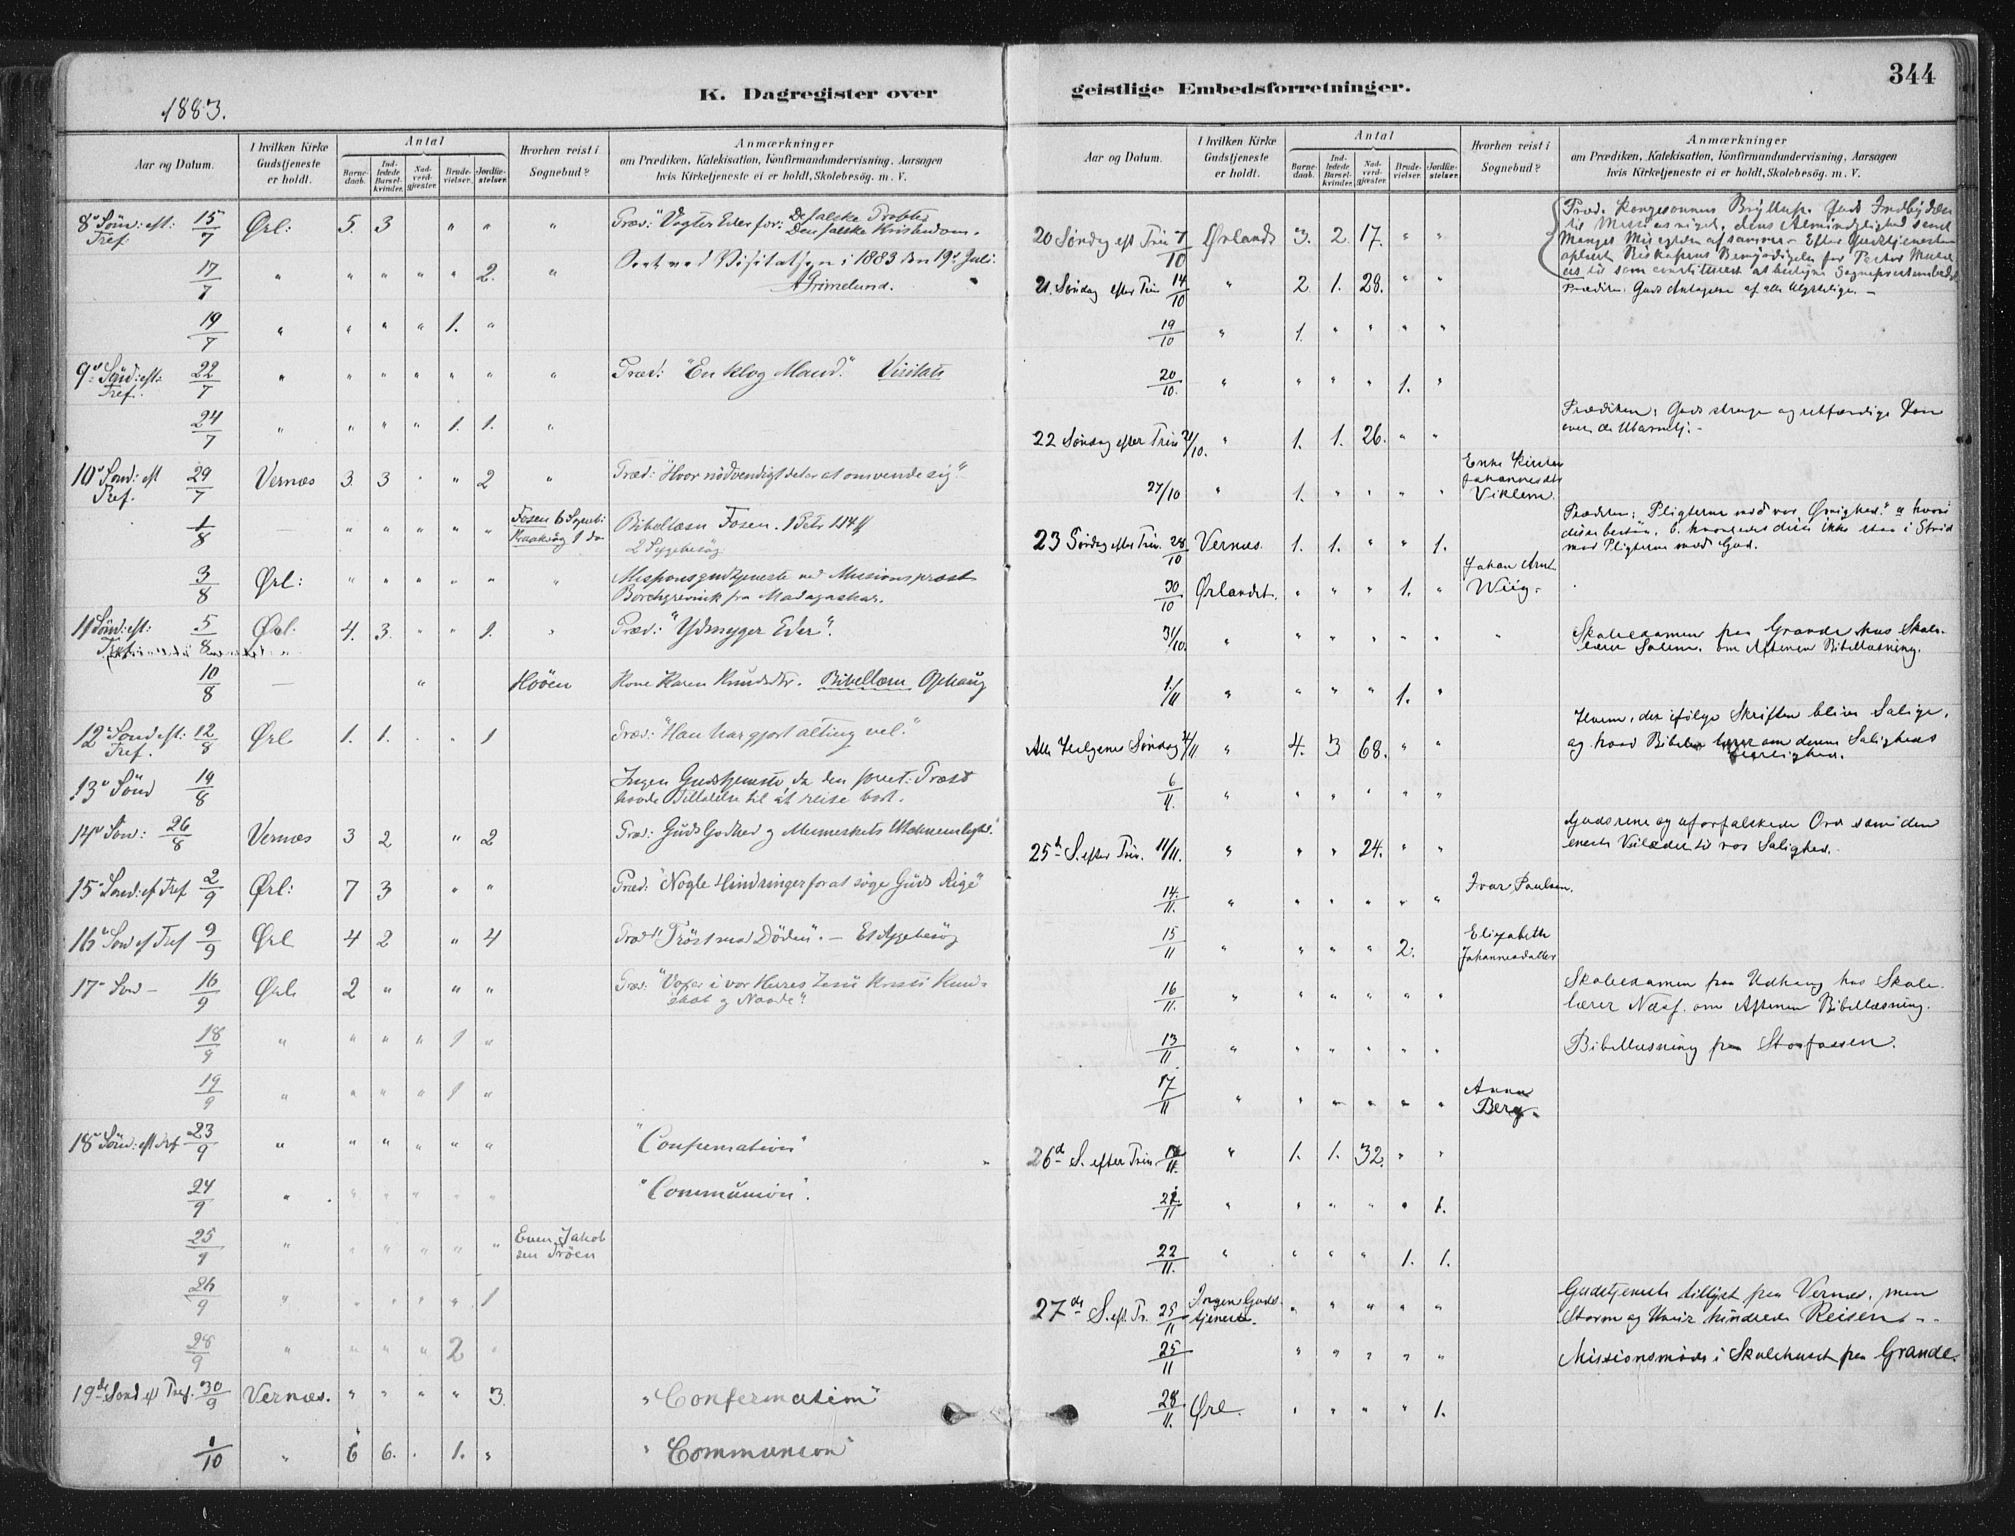 344
1883.
K. Dagregister over
geistlige Embedsforretninger.
Aar og Datum.
I hvilken Kirke Gudstjeneste er holdt.
Antal
Barne-daab.
Ind-ledede Barsel-kvinder.
Nad-verd-gjæster.
Brude-vielser.
Jordfæ-stelser.
Hvorhen reist i Sognebud?
Anmærkninger
om Prædiken, Katekisation, Konfirmandundervisning, Aarsagen
hvis Kirketjeneste ei er holdt, Skolebesög. m. V.
8de Sönd: eft: Tref. 15/7 Ørl: 5. 3 " " " Præd: "Vogter Eder for: De falske Profeter
Den falske Kristendom.
17/7 " " " " " 2. " Seet ved Visitatsen i 1883 den 19de Juli.
A Grimelund.
19/7 " " " " 1. "
9de Sönd: eft: Tref. 22/7 " " " " " " " Præd: "En klog Mand." Visitats
24/7 " " " " 1. 1. "
10de Sönd: eft Tref. 29/7 Vernæs 3. 3 " " 2 " Præd: "Hvor nödvendigt det er at omvende sig"
1/8 — " " " " " Fosen 6 Sognebs: Kraakvåg 1 do Bibellæsn Fosen. 1 Pet.
2 Sygebesög.
3/8 Ørl: " " " " " " Missionsgudstjeneste ved Missionspræst
Borchgrevink fra Madagaskar.
11 Sönd: eft: Tref. 5/8 Ørl: 4. 3. " " 1. " Præd: "Ydmyger Eder".
10/8 — " Hööen Kone Karen Knudsdtr. Bibellæsn Ophaug
12te Sönd eft: Tref. 12/8 Ørl. 1. 1. " 1 Præd: "Han har gjort alting vel."
13de Sönd 19/8 Ingen Gudstjeneste da den Præst
havde Tilladelse til at reise bort.
14de Sön: 26/8 Vernæs 3 2 " 2 Præd: Guds Godhed og Menneskets Utaknemlighd.
15de Sönd: ef Tref 2/9 Ørl: 7 3 " " Præd: "Nogle Hindringer for at söge Guds Rige"
16de Sön ef Tref 9/9 Ørl 4 2 " 4 Præd "Tröst mod Döden". — Et Sygebesög
17de Sön — 16/9 Ørl. 2 " " " Præd: "Voxer i vor Herres Jesu Kristi Kund-
skab og Naade".
18/9 " " " " 1 "
19/9 " " " " 1 "
18de Sönd: eft Tref 23/9 " " " " " " "Confirmation"
24/9 " " " " " " "Communion".
25/9 " " " " " " Even Jakob
sen Tröen
26/9 " " " " " 1
28/9 " " " " 2 "
19de Sönd ef Tref. 30/9 Vernæs. " " " " 3. "Confermation"
1/10 " 6 6. . 1. " "Communion"
Aar og Datum.
I hvilken Kirke Gudstjeneste er holdt.
Antal
Barne-daab.
Ind-ledede Barsel-kvinder.
Nad-verd-gjæster.
Brude-vielser.
Jordfæ-stelser.
Hvorhen reist i Sognebud?
Anmærkninger
om Prædiken, Katekisation, Konfirmandundervisning, Aarsagen
hvis Kirketjeneste ei er holdt, Skolebesög. m. V.
20 Søndag eft Trin 7/10 Ørlandt 3. 2. 17. " " Præd. Kongesønnens Bryllup. Guds Indbydelse
til Messiasriget, dens Almindelighed samt
Manges Misagtelse af samme. Efter Gudstjenesten
oplæst Biskopens Bemyndigelse for Pastor
til som constitueret at bestyre Sognepræstembedet
21. Søndag efter Trin 14/10 " 2. 1. 28. " " Prædiken: Guds Antagelse af alle Ulykkelige. —
19/10 " 1. " " " "
20/10 " " " " 1. "
22 Søndag efter Trin 21/10. " 1. 1. 26. " " Prædiken: Guds strenge og retfærdige Dom
over de Ubarmhj. -
27/10 " 1. " " " " Enke Kirsten
Johannesdtr
Viklem.
23 Søndag efter Trin. 28/10 Vernæs. 1. 1. " " 1. Prædiken: Pligterne mod vor Øvrighed: a hvori
disse bestaa, b. hvorledes disse ikke staa i Strid
mod Pligterne mod Gud.
30/10 Ørlandet. " " " 1. " Johan Arnt
Wiig.
31/10. " " " " " " " Skoleexamen paa Grande hos Skole-
lærer Solem. om Aftenen Bibellæsning.
1./11 " " " " 1. "
Alle Helgens Søndag 4/11 " 4. 3 68. " " Hvem, der ifølge Skriften bliver Salige,
og hvad Bibelen lærer om deres Saligheds
Herlighed.
6/11. " " " " " "
25de S. efter Trin. 11/11. " " " 24. " " Guds rene og uforfalskede Ord som den
eneste Veileder til vor Salighed.
14./11. " " " " " " Ivar Paulsen.
15/11 " " " " 2. Elizabeth
Johannesdatter
16/11. " " " " " " Skoleexamen paa Udhaug hos Skole-
lærer Næss. om Aftenen Bibellæsning.
13/11 " " " " " " Bibellæsning paa Storfosen.
17/11 " " " " " " Anna
Berg.
26de S. efter Trin 18/11. " 1. 1. 32. " "
21./11 " " " " " 1.
22/11. " " " " 1. 1.
27de S. eft. Tr. 25/11 Ingen Guds-
tjeneste. " " " " " Gudstjeneste tillyst paa Vernæs, men
Storm og Uveir hindrede Reisen. - -
25/11 " " " " " Missionsmøde i Skolehuset paa Grande.
28/11. Ørl. " " " " 1.